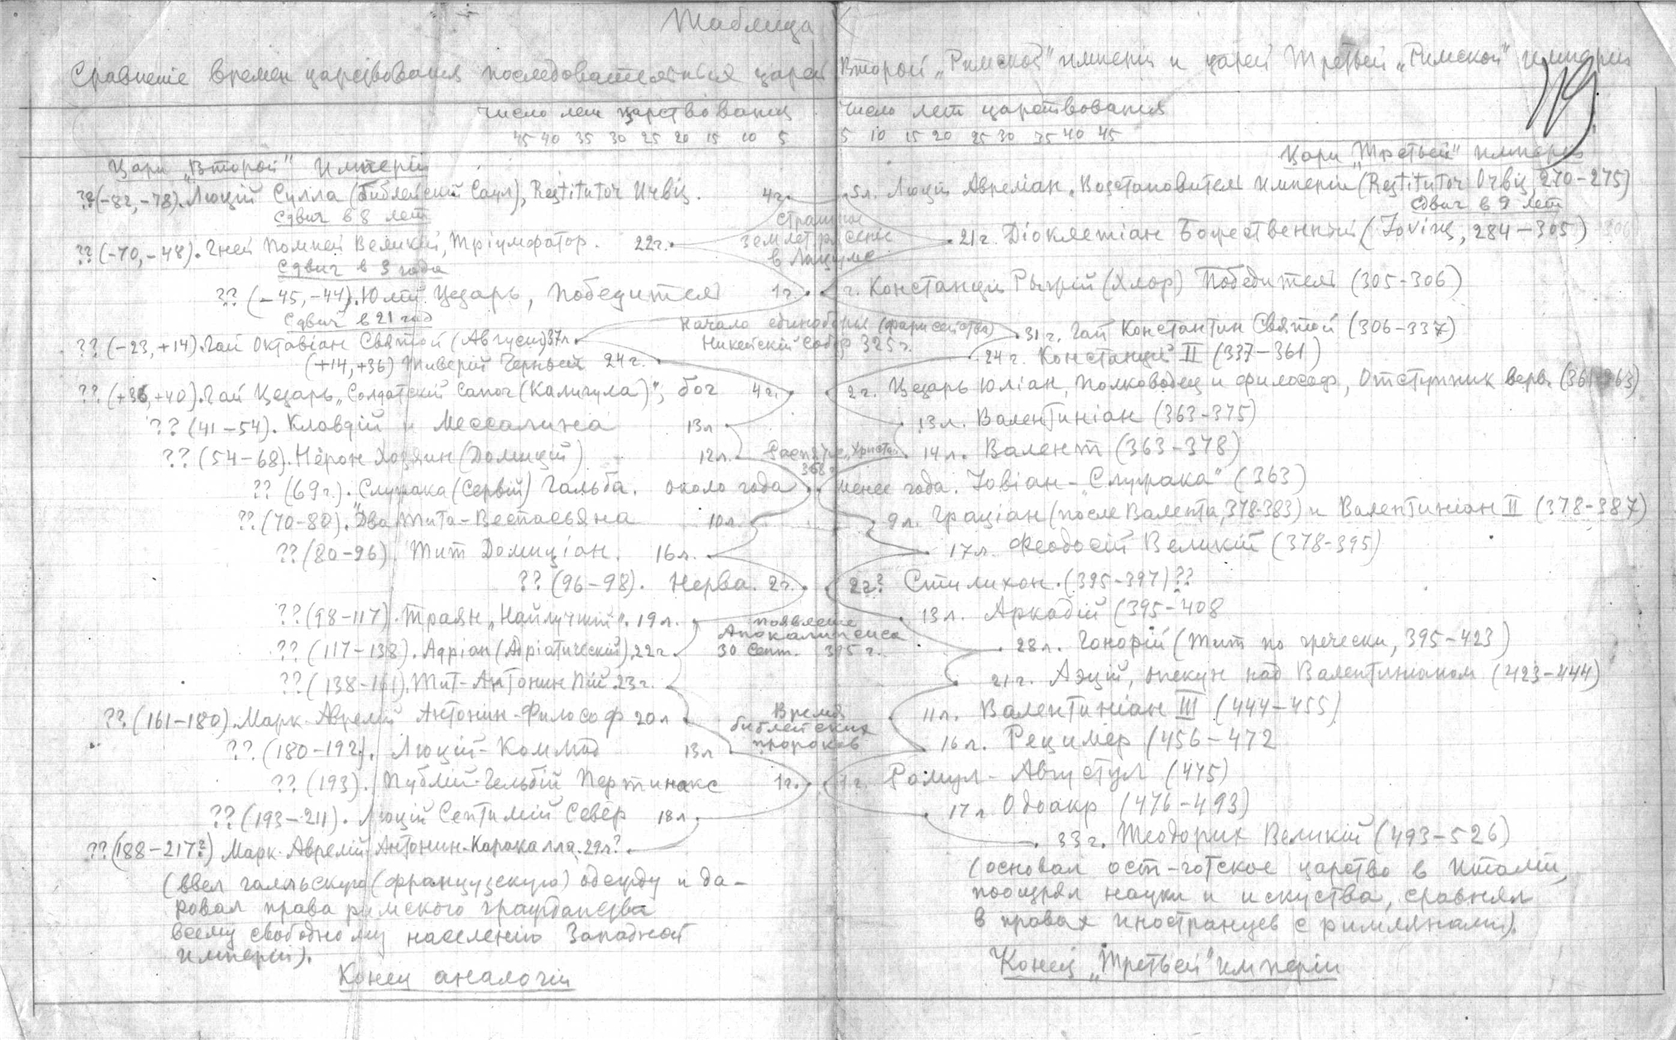 Таблица X
Сравненіе времен царствованія последовательных царей Второй „Римской" имперіи и царей Третьей „Римской" имперіи
119
число лет царствованія число лет царствованія
45 40 35 30 25 20 15 10 5 5 10 15 20 25 30 35 40 45
Цари „Второй" Имперіи Цари „Третьей" имперіи
??(-82,-78). Люцій Сулла (библейскій Саул), Restitutor 4г. 5л. Люцій Авреліан, Возстановитель Имперіи (Restitutor 270-275)
Сдвиг в 8 лет Сдвиг в 9 лет
страшное
??(-70,-48). Гней Помпей Великій, Тріумфатор. 22г. землетрясеніе 21г. Діоклетіан Божественный (284-305)
Сдвиг в 3 года в Лаціуме
??(-45,-44). Юлій Цезарь, Победитель 1г. г. Констанцій Рыжій (Хлор) Победитель (305-306)
Сдвиг в 21 год
??(-23,+14). Гай Октавіан Святой (Август) 37л. Начало единоборья (фарисейства) 31г. Гай Константин Святой (306-337)
Никейскій Собор 325г.
(+14,+36) Тиверій Черный 24г. 24г. Констанцій II (337-361)
??(+36,+40). Гай Цезарь „Солдатскій Сапог (Калигула)", бог 4г. 2г. Цезарь Юліан, Полководец и философ, Отступник (361-363)
??(41-54). Клавдій и Мессалина 13л 13л. Валентиніан (363-375)
??(54-68). Нерон Хозяин (Домицій) 12л. Распятіе Христа 14л. Валент (363-378)
368г.
??(69г.). „Служака (Сервій) Гальба. около года менее года. Іовіан-„Служака" (363)
??(70-80). Два Тита-Веспасьяна 10л. 9л. Граціан (после Валента, 378-383) и Валентиніан II (378-387)
??(80-96). Тит Домиціан. 16л. 17л. Феодосій Великій (378-395)
??(96-98). Нерва. 2г. 2г? Стилихон. (395-397)??
??(98-117). Траян „Найлучшій". 19л. появленіе 13л. Аркадій (395-408
Апокалипсиса
??(117-138). Адріан (Адріатическій) 22г. 30 Сент. 395г. 28л. Гонорій (Тит по гречески, 395-423)
??(138-161). Тит-Антонин Пій. 23г. 21г. Аэцій, опекун над Валентинианом (423-444)
??(161-180). Марк-Аврелій Антонин-Философ 20л Время 11л. Валентиніан III (444-455)
библейских
??(180-192). Люцій-Коммод 13л пророков 16л. Рецимер (456-472
??(193). Публій-Гельвій Пертинакс 1г. 1г. Ромул-Августул (475)
??(193-211). Люцій Септимій Север 18л. 17л. Одоакр (476-493)
??(188-217?) Марк-Аврелій Антонин-Каракалла. 29л? 33г. Теодорих Великій (493-526)
(ввел галльскую (французскую) одежду и да- (основал ост-готское царство в Италіи,
ровал права римского гражданства поощрял науки и искуства, сравнял
всему свободному населенію Западной в правах иностранцев с римлянами).
имперіи).
Конец аналогіи Конец „Третьей" имперіи